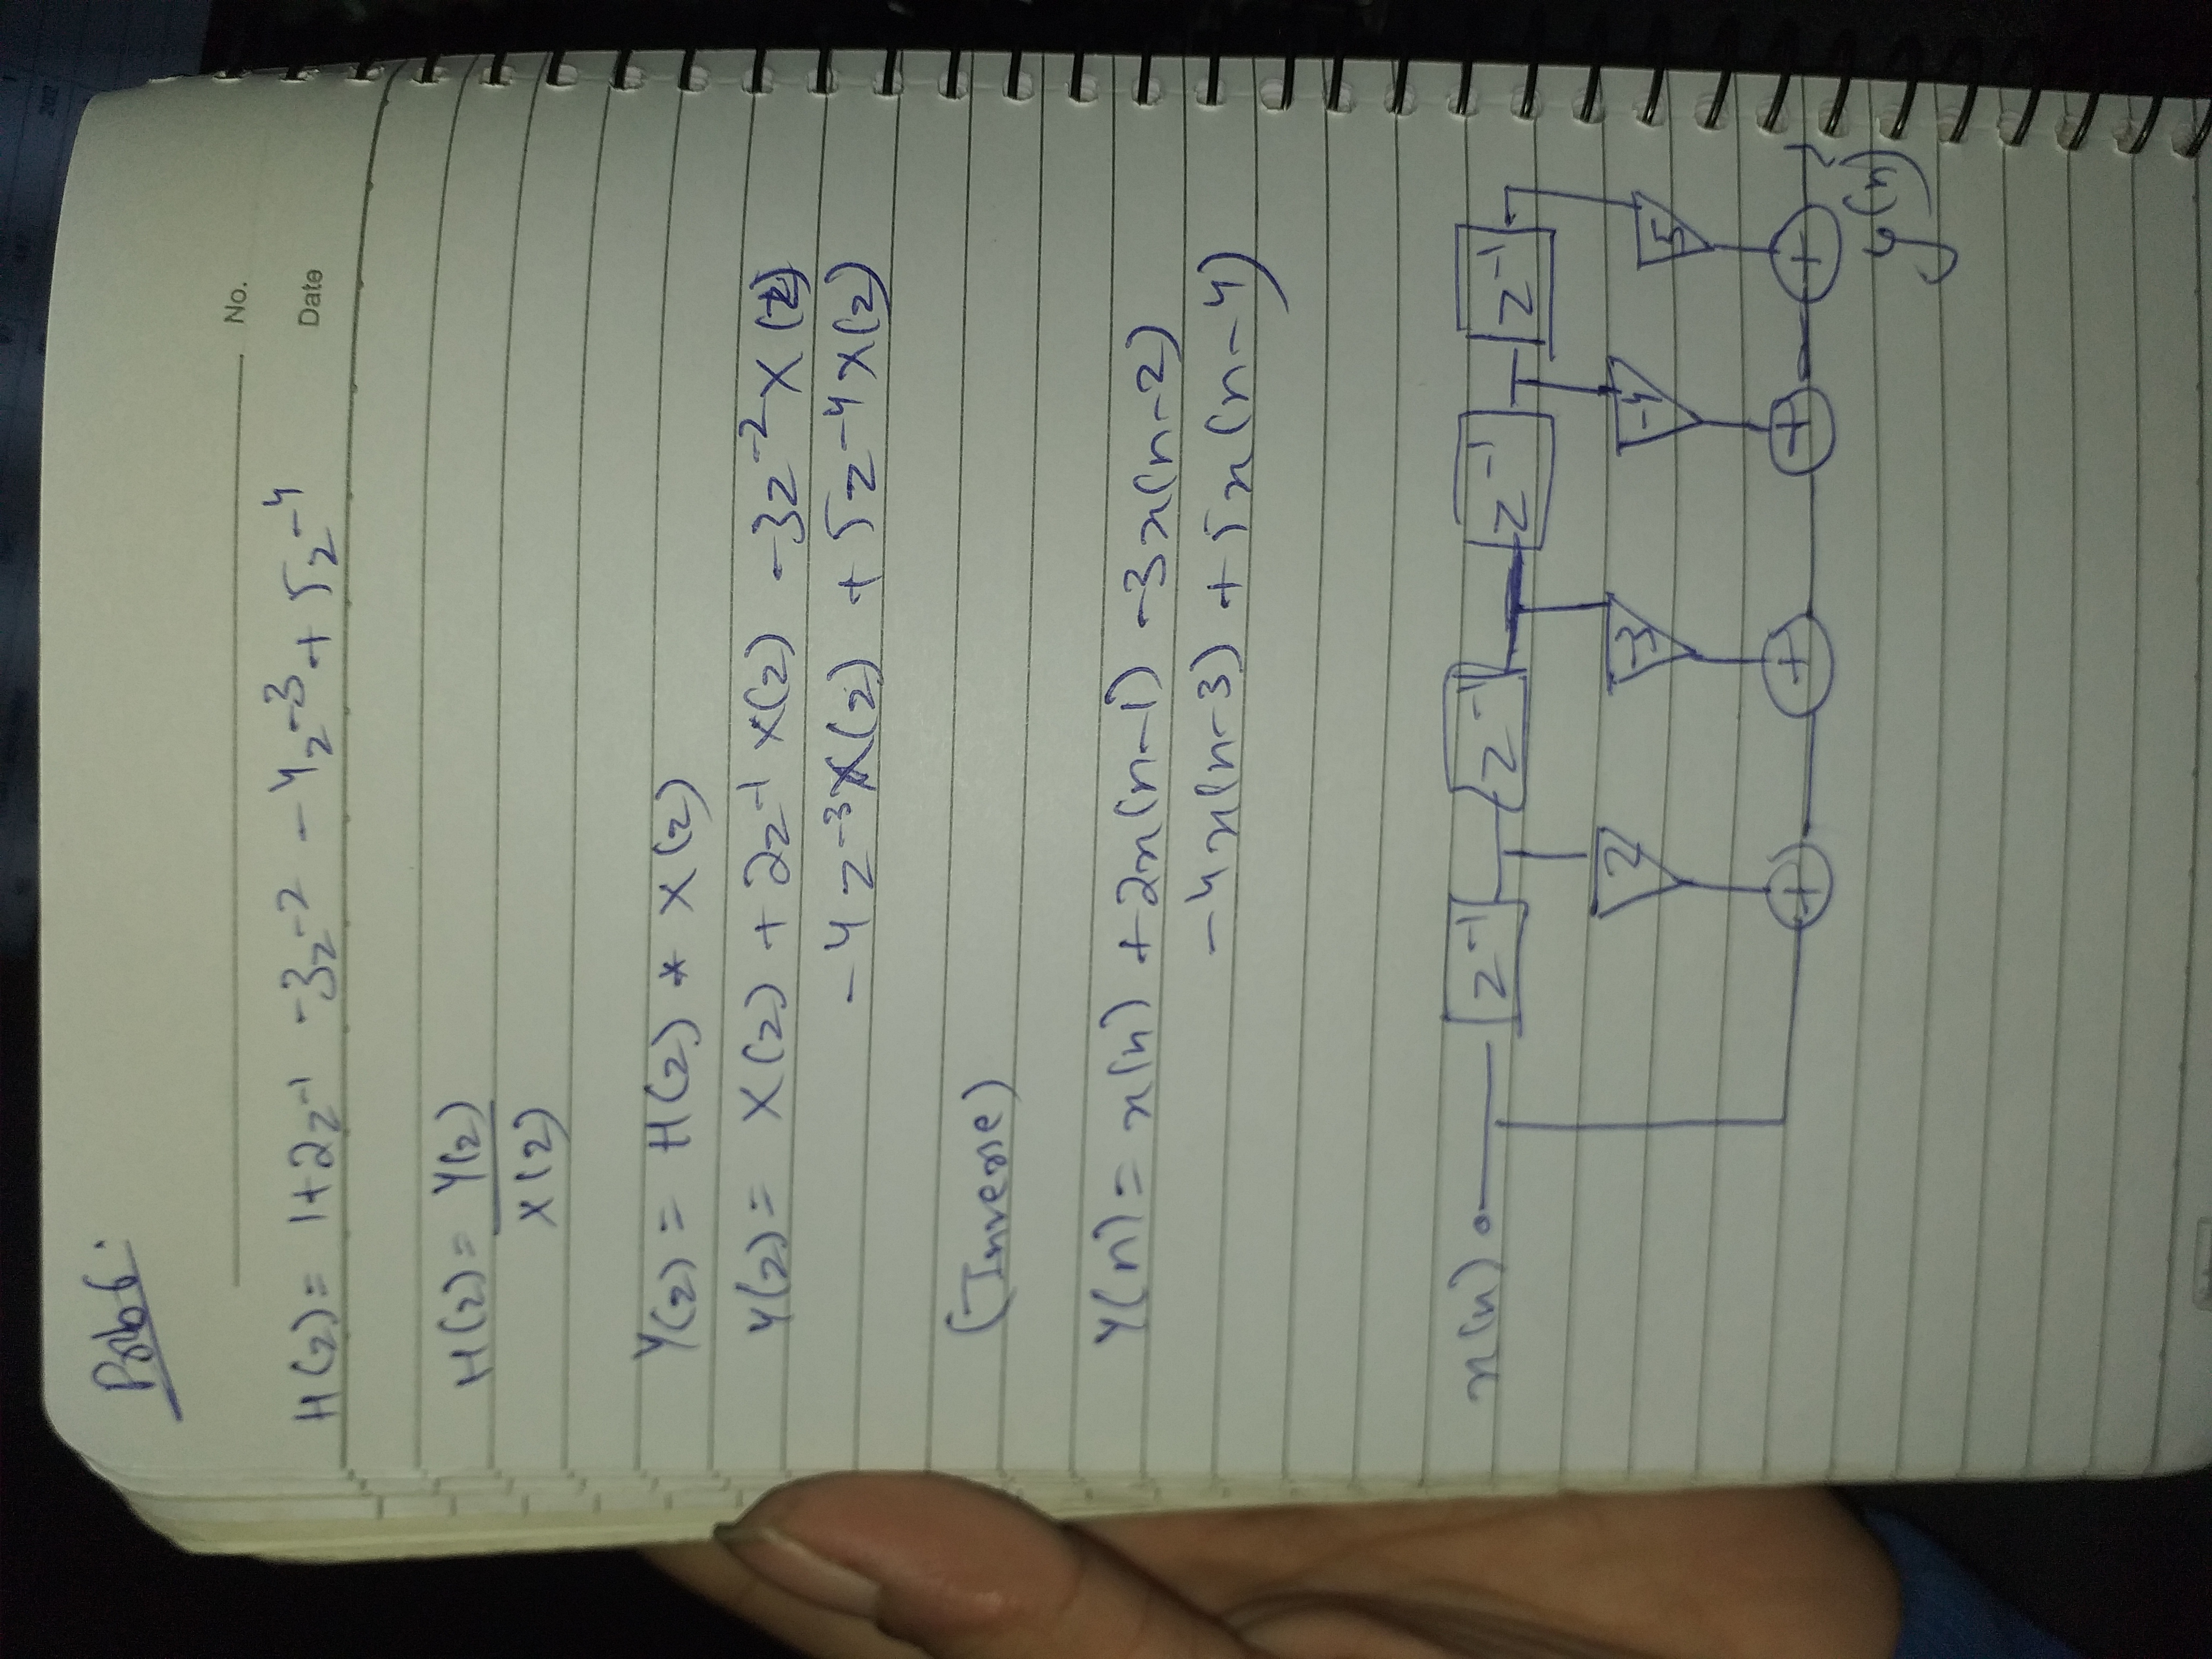 Prob 6.
No.
H(z) = 1+2z⁻¹ -3z⁻² -4z⁻³ + 5z⁻⁴
Date
H(z) = Y(z)
X(z)
Y(z) = H(z) * X(z)
Y(z) = X(z) + 2z⁻¹ X(z) -3z⁻² X(z)
-4z⁻³X(z) + 5z⁻⁴X(z)
(Inverse)
Y(n) = x(n) + 2x(n-1) -3x(n-2)
-4x(n-3) + 5x(n-4)
x(n) z⁻¹ z⁻¹ z⁻¹ z⁻¹
2 -3 -4 5
+ + + +
y(n)